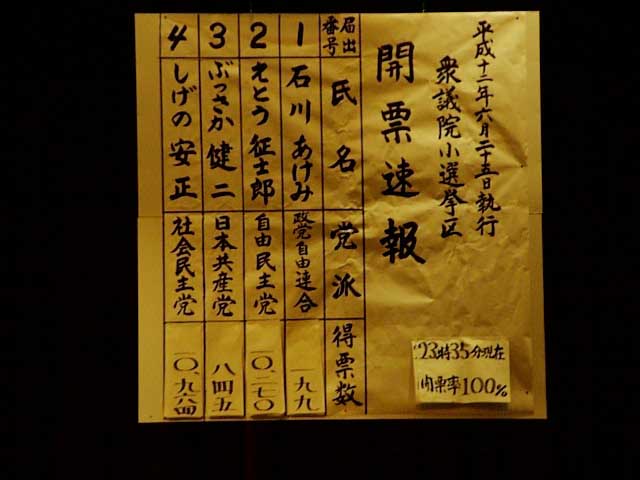 平成十二年六月二十五日執行
衆議院小選挙区
開票速報
23時35分現在
開票率100%
届出番号 氏名 党派 得票数
1 石川あけみ 政党自由連合 一九九
2 えとう征士郎 自由民主党 一〇、二七〇
3 ぶっさか健二 日本共産党 八四五
4 しげの安正 社会民主党 一〇、九六四